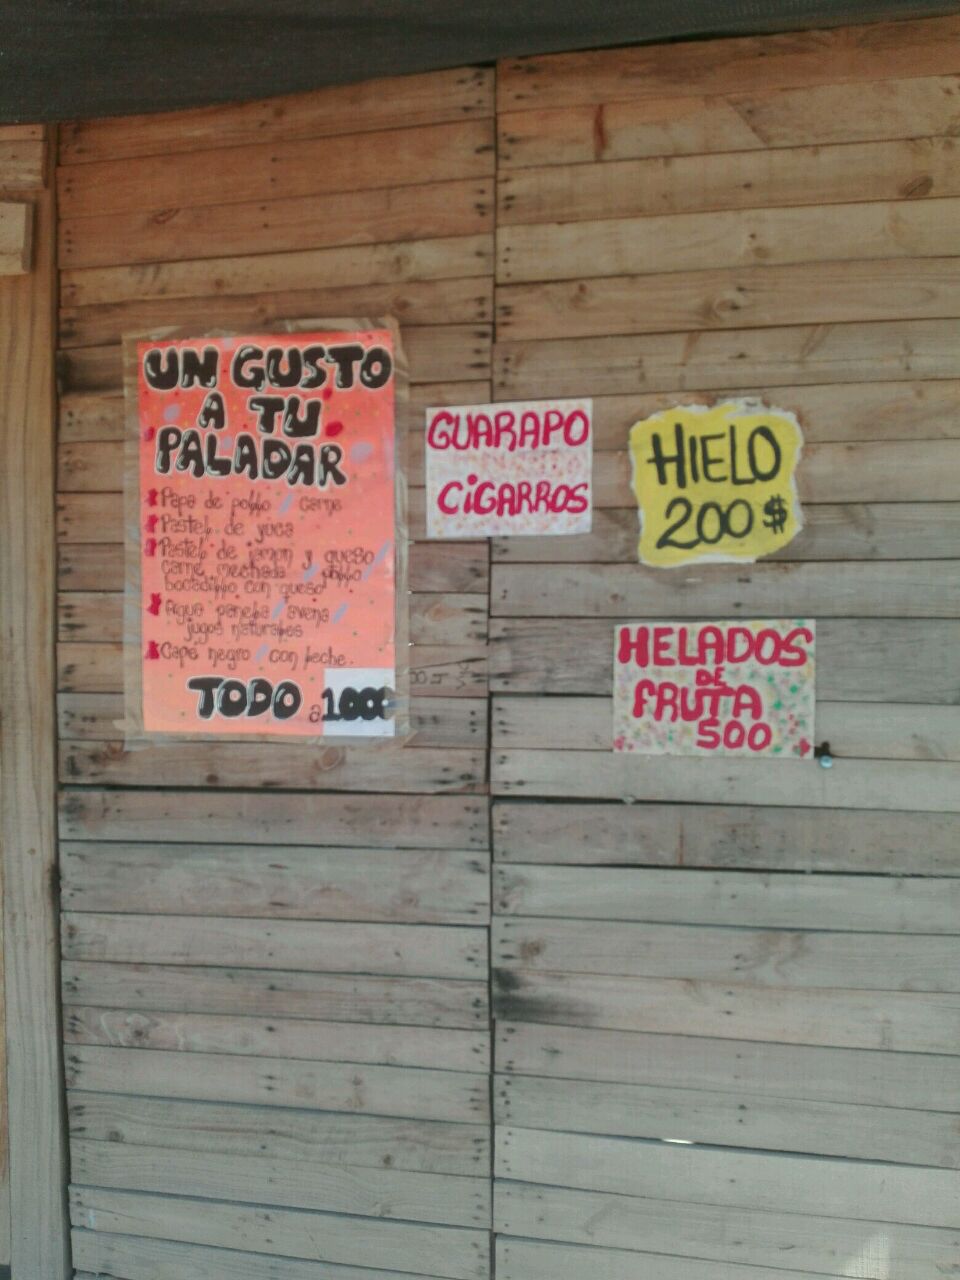 UN GUSTO
A TU
PALADAR
Papa de pollo / carne
Pastel de yuca
Pastel de jamon y queso/
carne mechada / pollo/
bocadillo con queso
Agua panela / avena /
jugos naturales
Cape negro / con leche.
TODO a 1000
GUARAPO
CiGARROS
HIELO
200$
HELADOS
DE
FRUTA
500